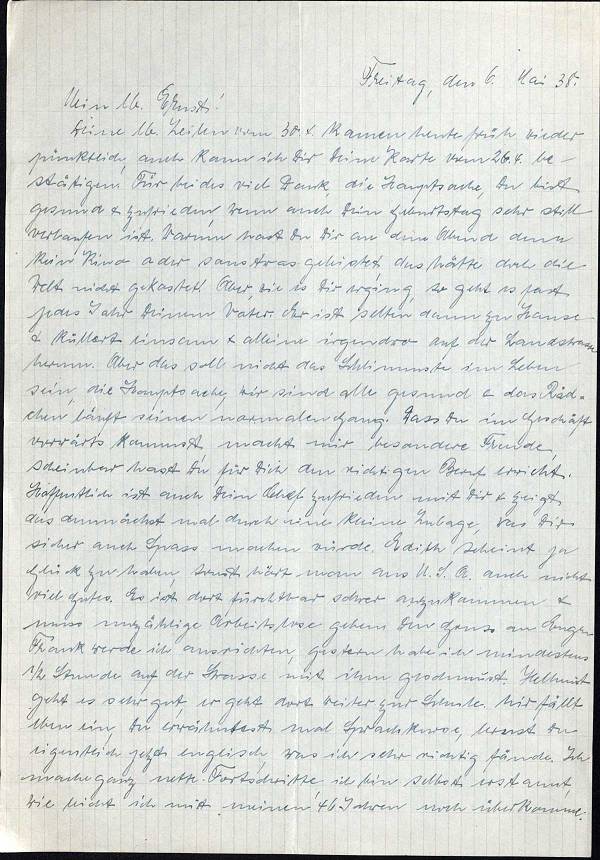 Freitag, den 6. Mai 38.
Mein lb. Ernst!
Deine lb. Zeilen vom 30.4. kamen heute früh wieder
pünktlich, auch kann ich Dir Deine Karte vom 26.4. be-
stätigen. Für beides viel Dank, die Hauptsache, Du bist
gesund & zufrieden, wenn auch Dein Geburtstag sehr still
verlaufen ist. Warum hast Du Dir an dem Abend denn
kein Kino oder sonst was geleistet, das hätte doch die
Welt nicht gekostet! Aber, wie es Dir erging, so geht es fast
jedes Jahr Deinem Vater. Er ist selten dann zu Hause
& kullert einsam & alleine irgendwo auf der Landstrasse
herum. Aber das soll nicht das Schlimmste im Leben
sein, die Hauptsache, wir sind alle gesund & das Räd-
chen läuft seinen normalen Gang. Dass Du im Geschäft
vorwärts kommst, macht mir besondere Freude,
scheinbar hast Du für Dich den richtigen Beruf erwischt.
Hoffentlich ist auch Dein Chef zufrieden mit Dir & zeigt
das demnächst mal durch eine kleine Zulage, was Dir
sicher auch Spass machen würde. Edith scheint ja
Glück zu haben, sonst hört man aus U.S.A. auch nicht
viel Gutes. Es ist dort furchtbar schwer anzukommen &
muss unzählige Arbeitslose geben. Den Gruss an Eugen
Frank werde ich ausrichten, gestern habe ich mindestens
1/2 Stunde auf der Strasse mit ihm geschmust. Hellmut
geht es sehr gut er geht dort weiter zur Schule. Mir fällt
eben ein, Du erwähntest mal Sprachkurse, lernst Du
eigentlich jetzt englisch, was ich sehr richtig fände. Ich
mache ganz nette Fortschritte ich bin selbst erstaunt,
wie leicht ich mit meinen 46 Jahren noch überkomme.